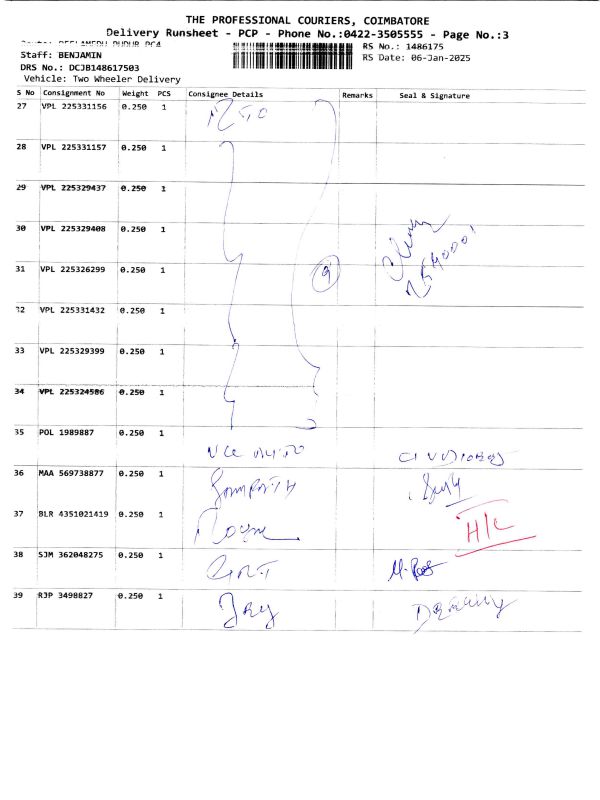 THE PROFESSIONAL COURIERS, COIMBATORE
Delivery Runsheet - PCP - Phone No.:0422-3505555 - Page No.:3
RS No.: 1486175
Staff: BENJAMIN RS Date: 06-Jan-2025
DRS No.: DCJB148617503
Vehicle: Two Wheeler Delivery
S No Consignment No Weight PCS Consignee Details Remarks Seal & Signature
27 VPL 225331156 0.250 1
28 VPL 225331157 0.250 1
29 VPL 225329437 0.250 1
30 VPL 225329408 0.250 1
31 VPL 225326299 0.250 1 9
32 VPL 225331432 0.250 1
33 VPL 225329399 0.250 1
34 VPL 225324586 0.250 1
35 POL 1989887 0.250 1
36 MAA 569738877 0.250 1
37 BLR 4351021419 0.250 1 H/C
38 SJM 362048275 0.250 1
39 RJP 3498827 0.250 1 Jay